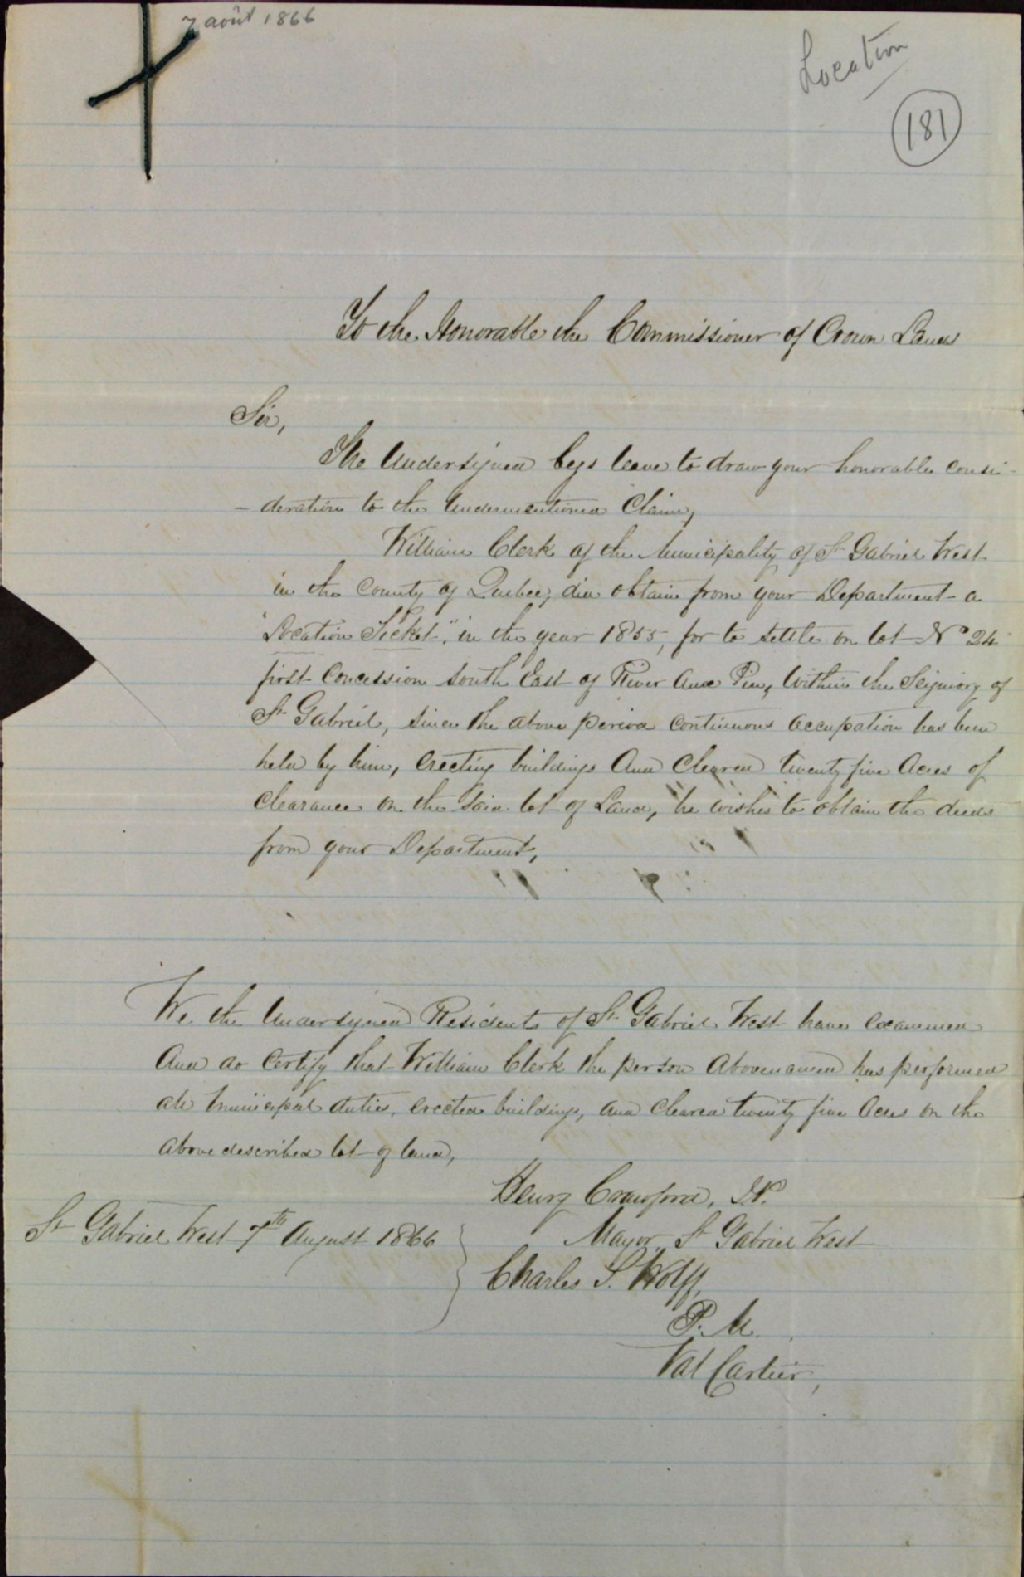 7 août 1866
Location
181
To the Honorable the Commissioner of Crown Lands
Sir,
The Undersigned begs leave to draw your honorable consi-
- deration to the Undermentioned Claim,
William Clerk of the Municipality of St Gabriel West
in the County of Quebec, did obtain from your Department a
"Location Ticket", in the year 1855, for to settle on lot No 24
first Concession South East of River Aux Pin, Within the Seigniory of
St Gabriel, since the above period continuous occupation has been
held by him, erecting buildings And Cleared twenty five Acres of
Clearance on the said lot of Land, he wishes to obtain the deeds
from your Department,
We the Undersigned Residents of St Gabriel West have examined
And do Certify that William Clerk the person Abovenamed has performed
all Municipal duties, erected buildings, and cleared twenty five Acres on the
above described lot of land,
Henry Crawford, J.P.
St Gabriel West 7th August 1866
Mayor, St Gabriel West
Charles S. Wolff,
P.M.
Val Cartier,